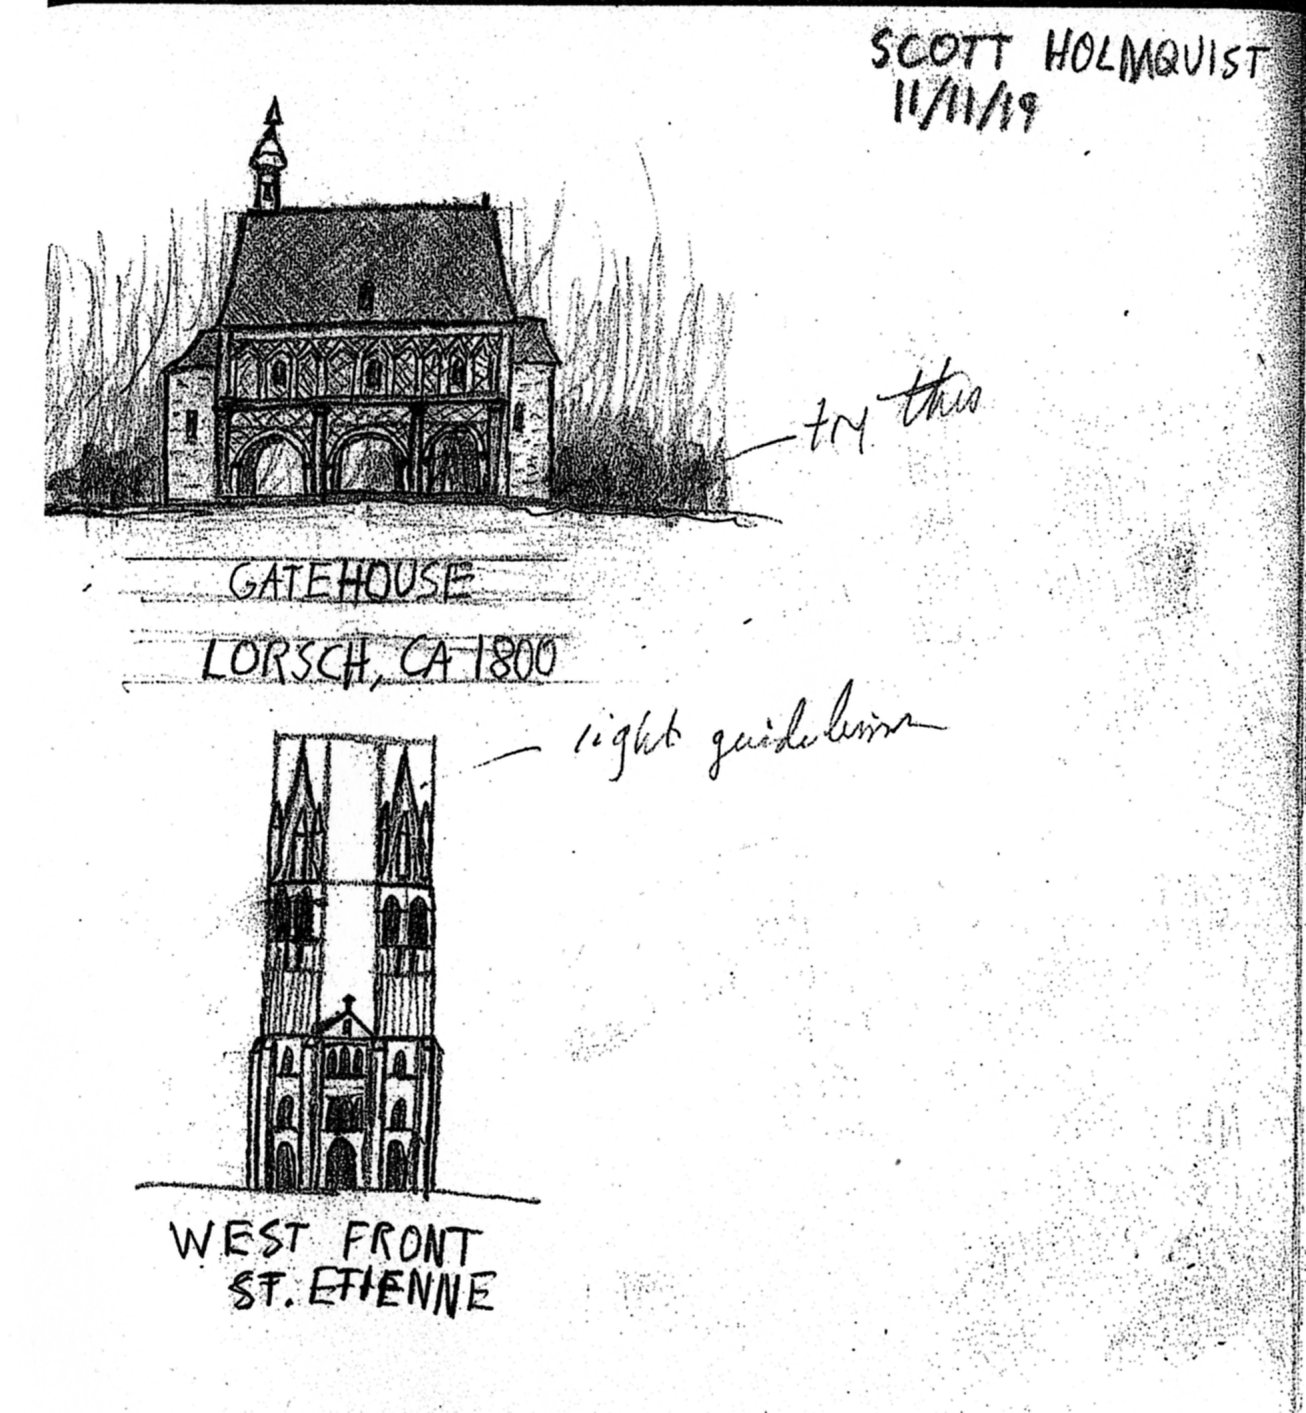 SCOTT HOLMQUIST
11/11/19
try this
GATEHOUSE
LORSCH, CA 1800
light guidelines
WEST FRONT
ST. ETIENNE